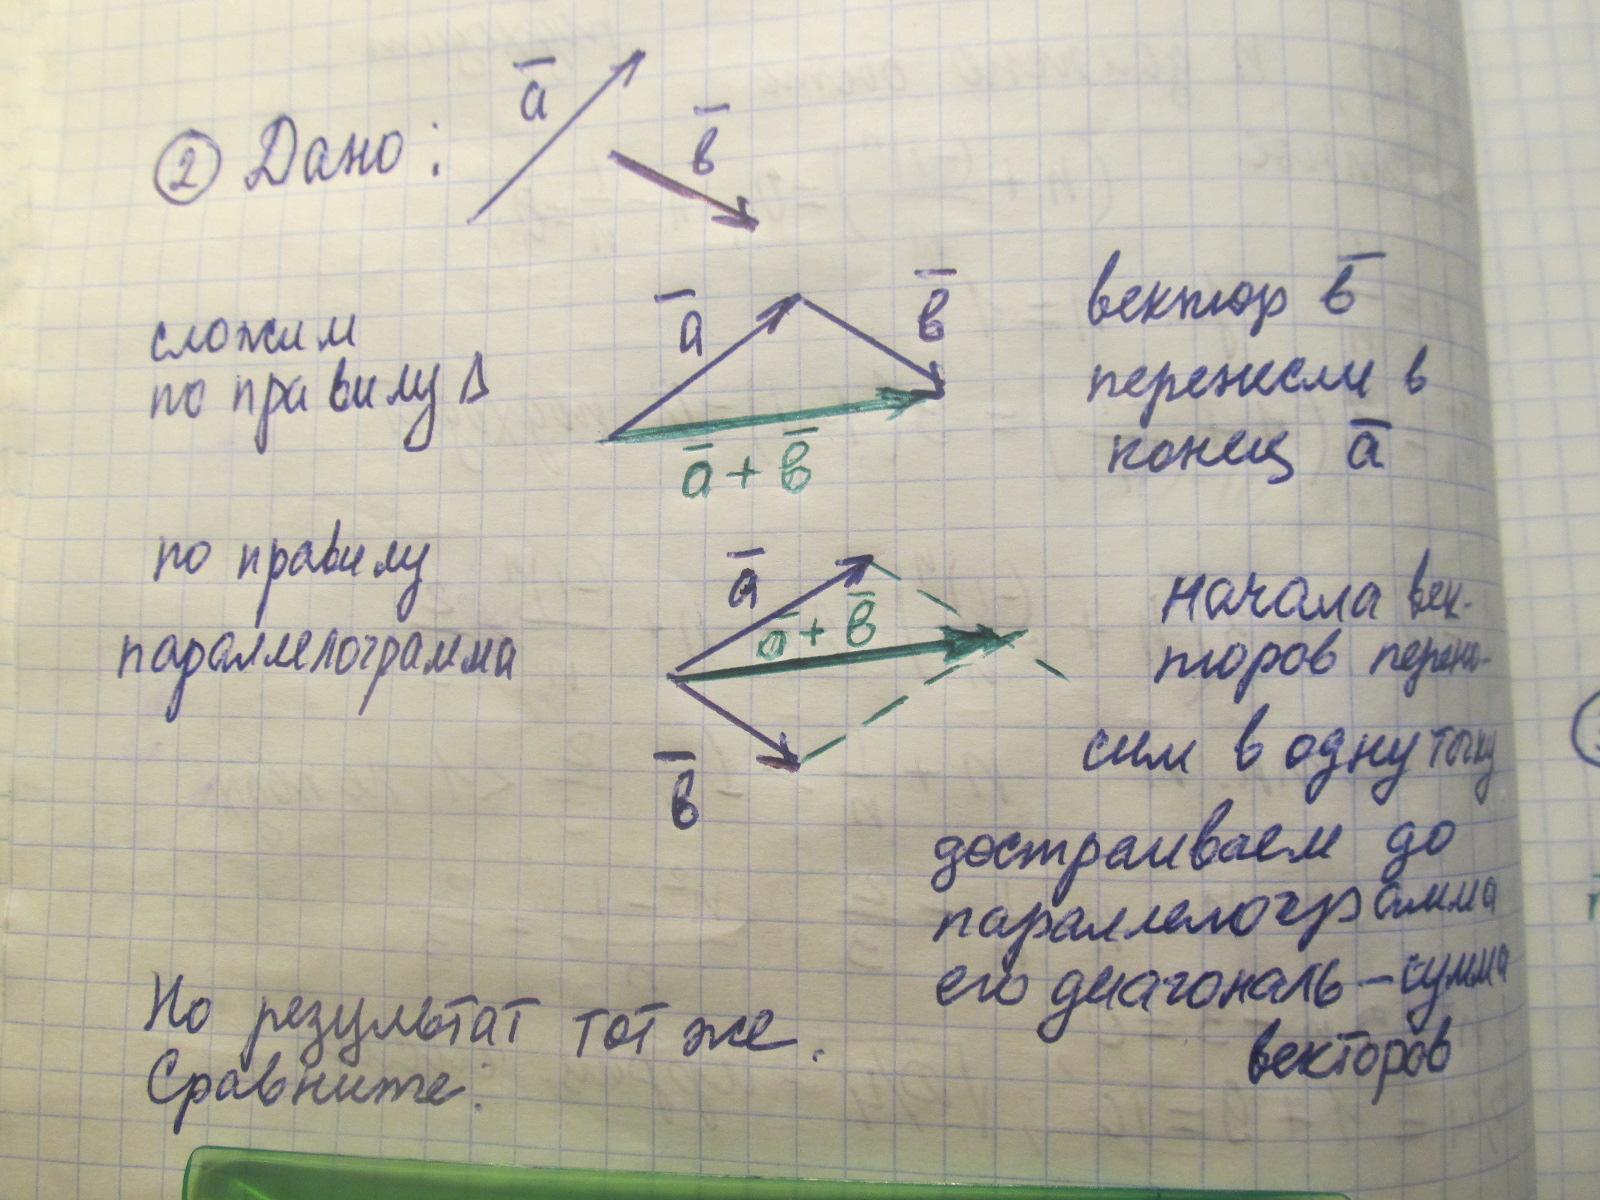 ② Дано: a̅ в̅
сложим
по правилу Δ
a̅ в̅
a̅ + в̅
вектор в̅
перенесли в
конец a̅
по правилу
параллелограмма
a̅
a̅ + в̅
в̅
начала век-
торов перено-
сим в одну точку
достраиваем до
параллелограмма
его диагональ – сумма
векторов
Но результат тот же.
Сравните: